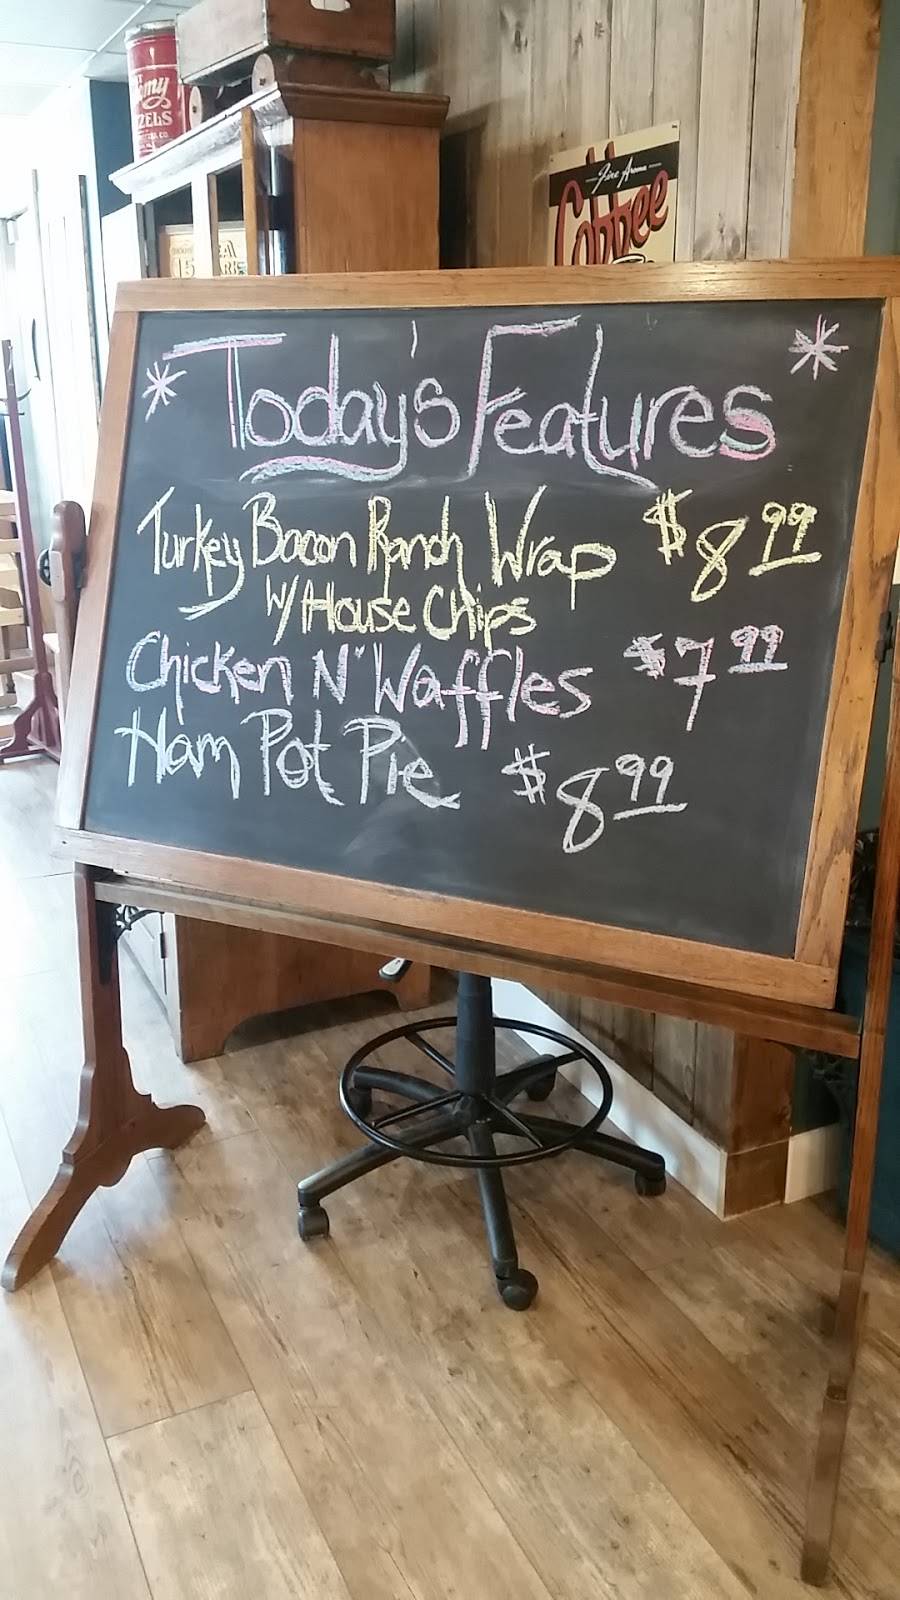 Fine Aroma
Coffee
* Today's Features *
Turkey Bacon Ranch Wrap $8.99
w/ House Chips
Chicken N' Waffles $7.99
Ham Pot Pie $8.99